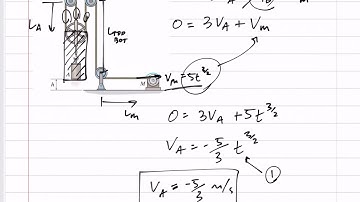 0 = 3V_A + V_m
L_A
L_TOP BOT
V_m = 5t^{3/2}
A
M
L_m
0 = 3V_A + 5t^{3/2}
V_A = -5/3 t^{3/2}
1
V_A = -5/3 m/s